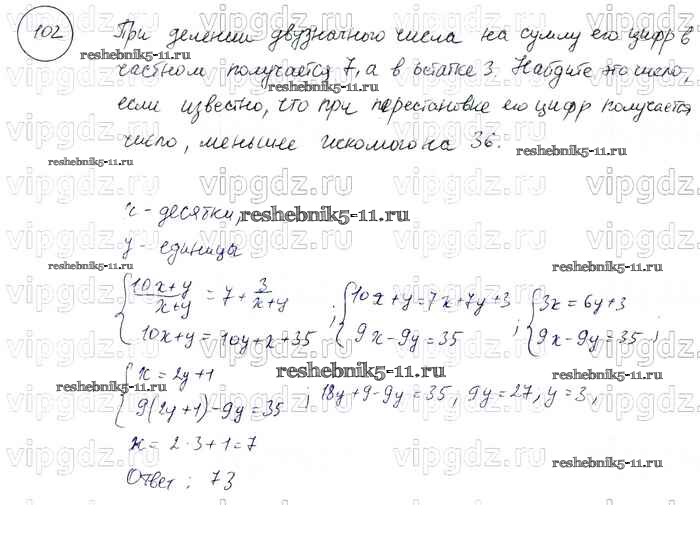 102
При делении двузначного числа на сумму его цифр в
частном получается 7, а в остатке 3. Найдите это число,
если известно, что при перестановке его цифр получается
число, меньшее искомого на 36.
x - десятки,
y - единицы
{ (10x+y)/(x+y) = 7 + 3/(x+y) ; { 10x+y=7x+7y+3 ; { 3x=6y+3
{ 10x+y=10y+x+35 { 9x-9y=35 { 9x-9y=35 ;
{ x = 2y+1
{ 9(2y+1)-9y=35 ; 18y+9-9y=35, 9y=27, y=3,
x = 2·3+1=7
Ответ: 73
vipgdz.ru
reshebnik5-11.ru